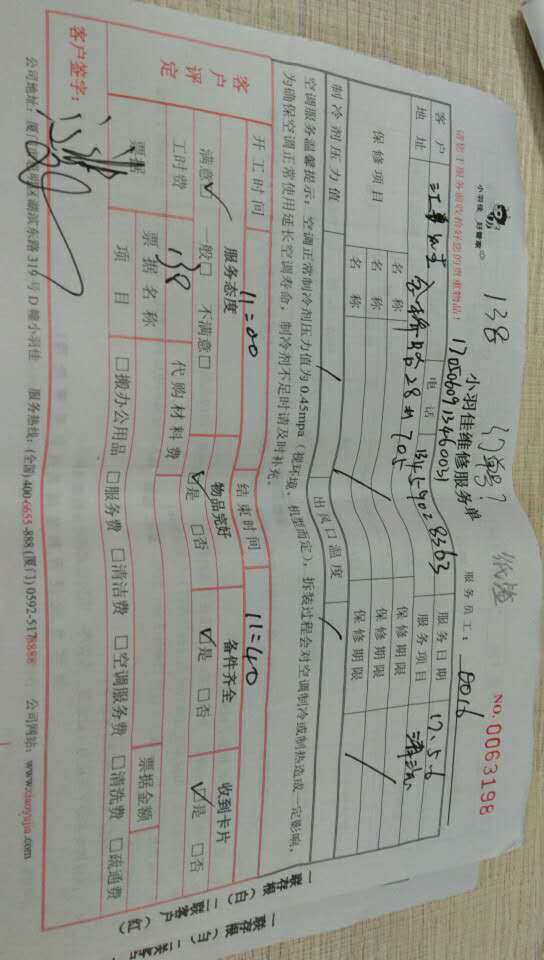 小羽佳 好管家
138
约单号?
纸盒
NO.0063198
小羽佳维修服务单
17050609134600051
服务员工: 0016
请您于服务前收拾好您的贵重物品!
客户
电话
8363
服务日期 17.5.6
地址
28#705
服务项目 清洗
保修项目
名称
保修期限
名称
保修期限
制冷剂压力值 /
出风口温度 /
空调服务温馨提示:空调正常制冷剂压力值为0.45mpa(视环境、机型而定),拆装过程会对空调制冷或制热造成一定影响,
为确保空调正常使用延长空调寿命,制冷剂不足时请及时补充。
开工时间 11=00
结束时间 11=40
客户评定
服务态度
物品完好
备件齐全
收到卡片
满意☑ 一般□ 不满意□
☑是 □否
☑是 □否
☑是 □否
工时费 138
代购材料费
票据
票据名称
票据金额
项目
□搬办公用品 □服务费 □清洁费 □空调服务费 □清洗费 □疏通费
客户签字:
公司地址:厦门 湖滨东路319号D幢小羽佳 服务热线:(全国)400-6655-888 (厦门)0592-5178888 公司网站:www.xiaoyujia.com
一联存根(白) 二联客户(红)
一联存根(白)